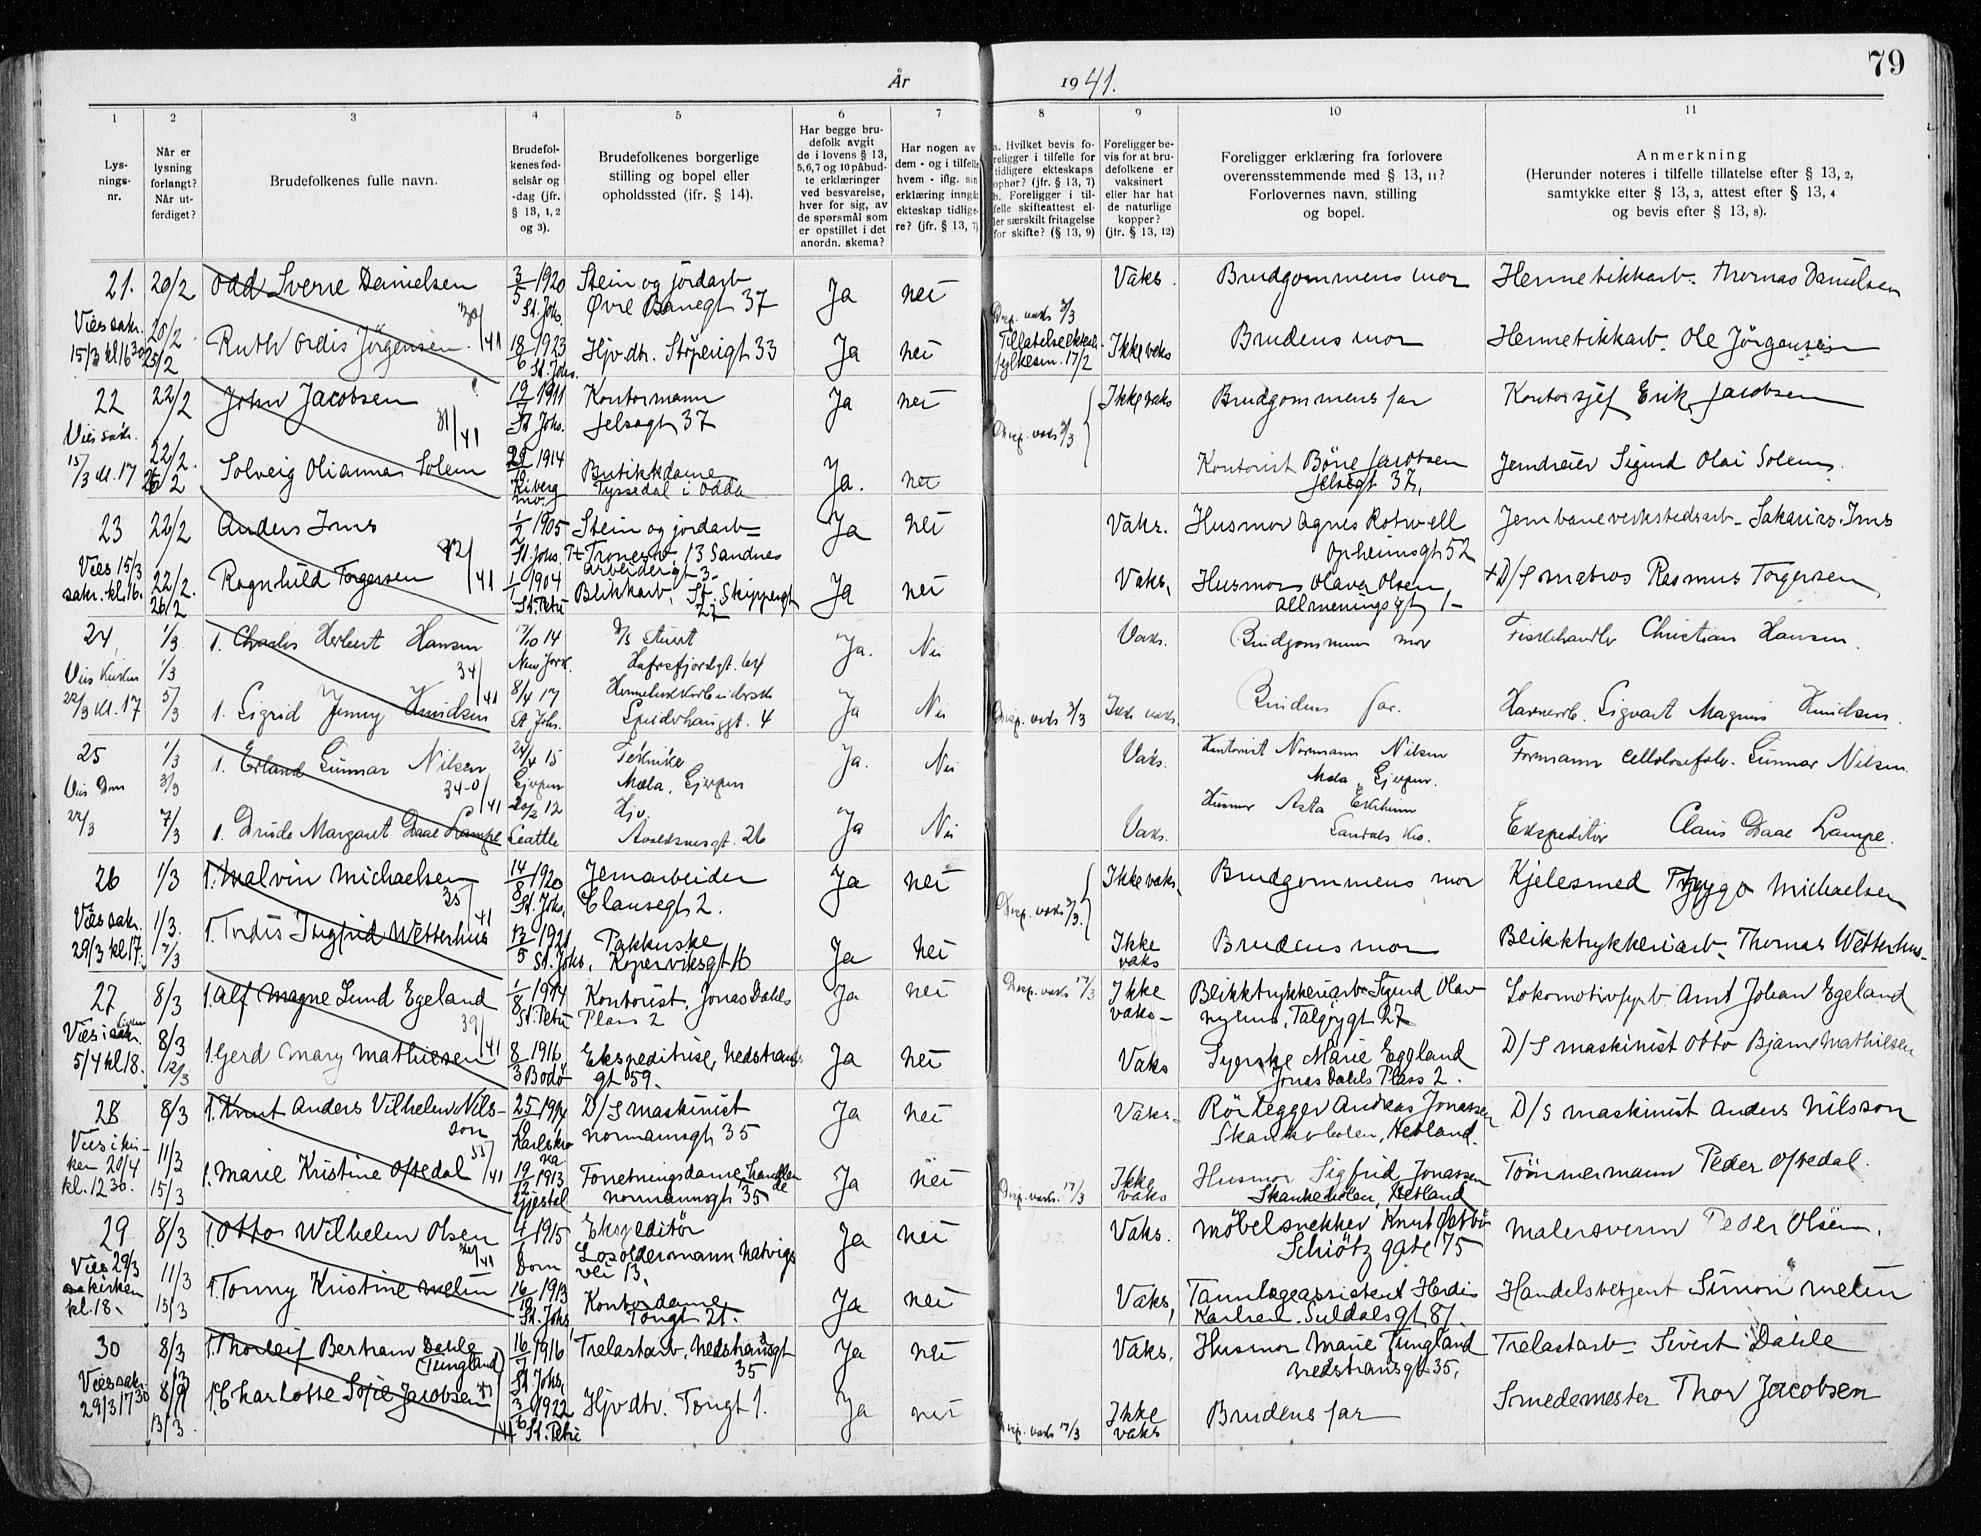 79
År 1941.
1 2 3 4 5 6 7 8 9 10 11
Lys-
nings-
nr.
Når er
lysning
forlangt?
Når ut-
ferdiget?
Brudefolkenes fulle navn.
Brudefol-
kenes fød-
selsår og
-dag (jfr.
§ 13, 1, 2
og 3).
Brudefolkenes borgerlige
stilling og bopel eller
opholdssted (ifr. § 14).
Har begge bru-
defolk avgit
de i lovens § 13,
5,6,7 og 10 påbud-
te erklæringer
ved besvarelse,
hver for sig, av
de spørsmål som
er opstillet i det
anordn. skema?
Har nogen av
dem - og i tilfelle
hvem - iflg. sin
erklæring inngå
ekteskap tidlige-
re? (jfr. § 13, 7)
a. Hvilket bevis fo-
religger i tilfelle for
tidligere ekteskaps
ophør? (jfr. § 13, 7)
b. Foreligger i til-
felle skifteattest el-
ler særskilt fritagelse
for skifte? (§ 13, 9)
Foreligger be-
vis for at bru-
defolkene er
vaksinert
eller har hat
de naturlige
kopper?
(jfr. § 13, 12)
Foreligger erklæring fra forlovere
overensstemmende med § 13, 11?
Forlovernes navn, stilling
og bopel.
Anmerkning
(Herunder noteres i tilfelle tillatelse efter § 13, 2,
samtykke efter § 13, 3, attest efter § 13, 4
og bevis efter § 13, 8).
21. 20/2 Odd Sverre Danielsen 3/5 1920 Stein og jordarb Ja nei Vaks. Brudgommens mor Hermetikkarb. Thomas Danielsen
St. Johs. Øvre Banegt 37
Vies sakr. 20/2 30/41 Disp. vaks 3/3
15/3 kl 16 30 25/2 Ruth Ordis Jörgensen 18/6 1923 Hjv. dtr. Støperigt 33 Ja nei Tillatelse fylkesm. 17/2 Ikke vaks Brudens mor Hermetikkarb. Ole Jörgensen
St. Johs.
22 22/2 John Jacobsen 1911 Kontormann Ja nei Ikke vaks Brudgommens far Kontorsjef Erik Jacobsen
31/41 St. Johs. Jelsagt 37 Disp. vaks 3/3
Vies sakr. 22/2.
15/3 kl. 17 26/2 Solveig Olianna Solem 1914 Butikkdame Ja. nei Kontorist Jacobsen Jerndreier Sigurd Olai Solem.
Kiberg Tyssedal i Odda Jelsagt 37,
23 22/2 Anders Ims 1/2 1905 Stein og jordarb Ja nei Vaks. Husmor Agnes Rotwell Jernbaneverkstedsarb. Sakarias Ims
St. Johs. Tronesv. 13 Sandnes Opheimsgt 52
Vies 15/3 32/41 Arbeidergt 3
sakr. kl. 16. 22/2. Ragnhild Torgersen 1/1 1904 Blikkarb, St. Skippergt Ja nei Vaks, Husmor Olava Olsen, D/S matros Rasmus Torgersen
26/2 St. Petri 22 Allmenningsgt 1
24, 1/3 1. Charles Herbert Hansen 17/10 14 D/S stuert Ja. Nei Vaks. Brudgommens mor Fiskehandler Christian Hansen.
Vies Kirken 1/3 34/41 New York Hafrsfjordgt. 64
22/3 kl. 17 5/3 1. Sigrid Jenny Knudsen 8/4 17 Hermetikkarbeiderske Ja Nei Disp. vaks 3/3 Ikke vaks. Brudens far. Havnearb. Sigvart Magnus Knudsen.
St. Johs. 4
25 1/3 1. Erland Gunnar Nilsen 24/4 15 Tekniker Ja. Nei Vaks. Kontorist Normann Nilsen Formann cellulosefabr. Gunnar Nilsen.
Vies Dom 3/3 340/41 Gjerpen Mæla, Gjerpen Mæla, Gjerpen.
22/3 7/3 1. Drude Margaret Daae Lampe 20/2 12 Hjv. Ja Nei Vaks. Husmor Asta Ekspeditör Claus Daae Lampe.
Seattle Avaldsnesgt. 26
26 1/3 1. Malvin Michaelsen 14/8 1920 Jernarbeider Ja nei Ikke vaks. Brudgommens mor Kjelesmed Tryggo Michaelsen
35/41 St. Johs, Clausegt 2. Disp. vaks 3/3.
Vies sakr. 1/3.
29/3 kl 17. 7/3 1. Tordis Ingfrid Wetterhus 13/5 1921 Pakkerske Ja nei Ikke vaks Brudens mor Blikktrykkeriarb. Thomas Wetterhus
St. Johs, Koperviksgt 16
27 8/3 1. Alf Magne Lund Egeland 1/8 1914 Kontorist, Jonas Dahls Ja nei Disp. vaks 17/3 Ikke vaks Blikktrykkeriarb. Sigurd Olav Lokomotivfyrb. Arnt Johan Egeland
39/41 St. Petri Plass 2 Talgøygt 27
Vies i kirken 8/3
5/4 kl 18. 12/3 1. Gerd Mary Mathiesen 8/3 1916 Ekspeditrise, Nedstrands Ja nei Vaks Syerske Marie Egeland D/S maskinist Otto Bjarne Mathiesen
Bodö gt 59. Jonas Dahls Plass 2.
28 8/3 1. Knut Anders Vilhelm Nils- 25/ 1914 D/S maskinist Ja nei Vaks. Rörlegger Andreas Jonassen D/S maskinist Anders Nilsson
son Karlskro Normannsgt 35 Skankeholen, Hetland.
na
Vies i kir- 11/3 55/41
ken 20/4 1. Marie Kristine Oftedal 19/12 1913 Forretningsdame, Ja nei Disp. vaks. 17/3 Ikke vaks Husmor Sigfrid Jonassen Tömmermann Peder Oftedal.
kl. 12 30. 15/3 Gjestal Normannsgt 35 Skankeholen, Hetland
29 8/3 1. Otto Wilhelm Olsen 4/1 1915 Ekspeditör Ja nei Vaks. Möbelsnekker Knut Malersvenn Peder Olsen.
Dom Losoldermann Natvigs Schiötz gate 75
vei 13,
Vies 29/3 11/3
kirken 1. Tonny Kristine Melin 16/ 1913 Kontordame Ja nei Vaks, Tannlegeassistent Herdis Handelsbetjent Simon Melin
kl. 18. 15/3 St. Johs, Tongt 21. Karlsen. Suldalsgt 81.
30 8/3 1. Thorleif Bertram Dahle 16/7 1916 Trelastarb. Nedstrandsgt Ja nei Vaks. Husmor Marie Tungland Trelastarb. Sivert Dahle
(Tungland) St. Johs, 35 Nedstrandsgt 35,
Vies sakr. 8/3
29/3 17 30 13/3. 1. Charlotte Sofie Jacobsen 3/6 1922 Hjv. dtr. Tongt 1. Ja nei Disp. vaks 17/3 Ikke vaks Brudens far Smedemester Thor Jacobsen
St. Petri